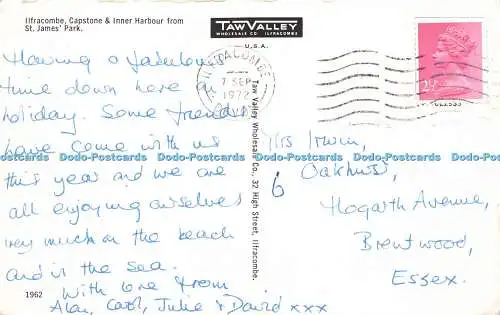 Ilfracombe, Capstone & Inner Harbour from
St. James' Park.
TAW VALLEY
WHOLESALE CO. ILFRACOMBE
U.S.A.
ILFRACOMBE
7 SEP
1972
2½P
Having a fabulous
time down here on
holiday. Some friends
have come with us
this year and we are
all enjoying ourselves
very much on the beach
and in the sea.
With love from
Alan, Carol, Julie & David xxx
Taw Valley Wholesale Co., 32 High Street, Ilfracombe.
Mrs Irwin,
6
Oakhurst,
Hogarth Avenue,
Brentwood,
Essex.
1962
Dodo-Postcards Dodo-Postcards Dodo-Postcards Dodo-Postcards Dodo-Postcards Dodo-Postcards